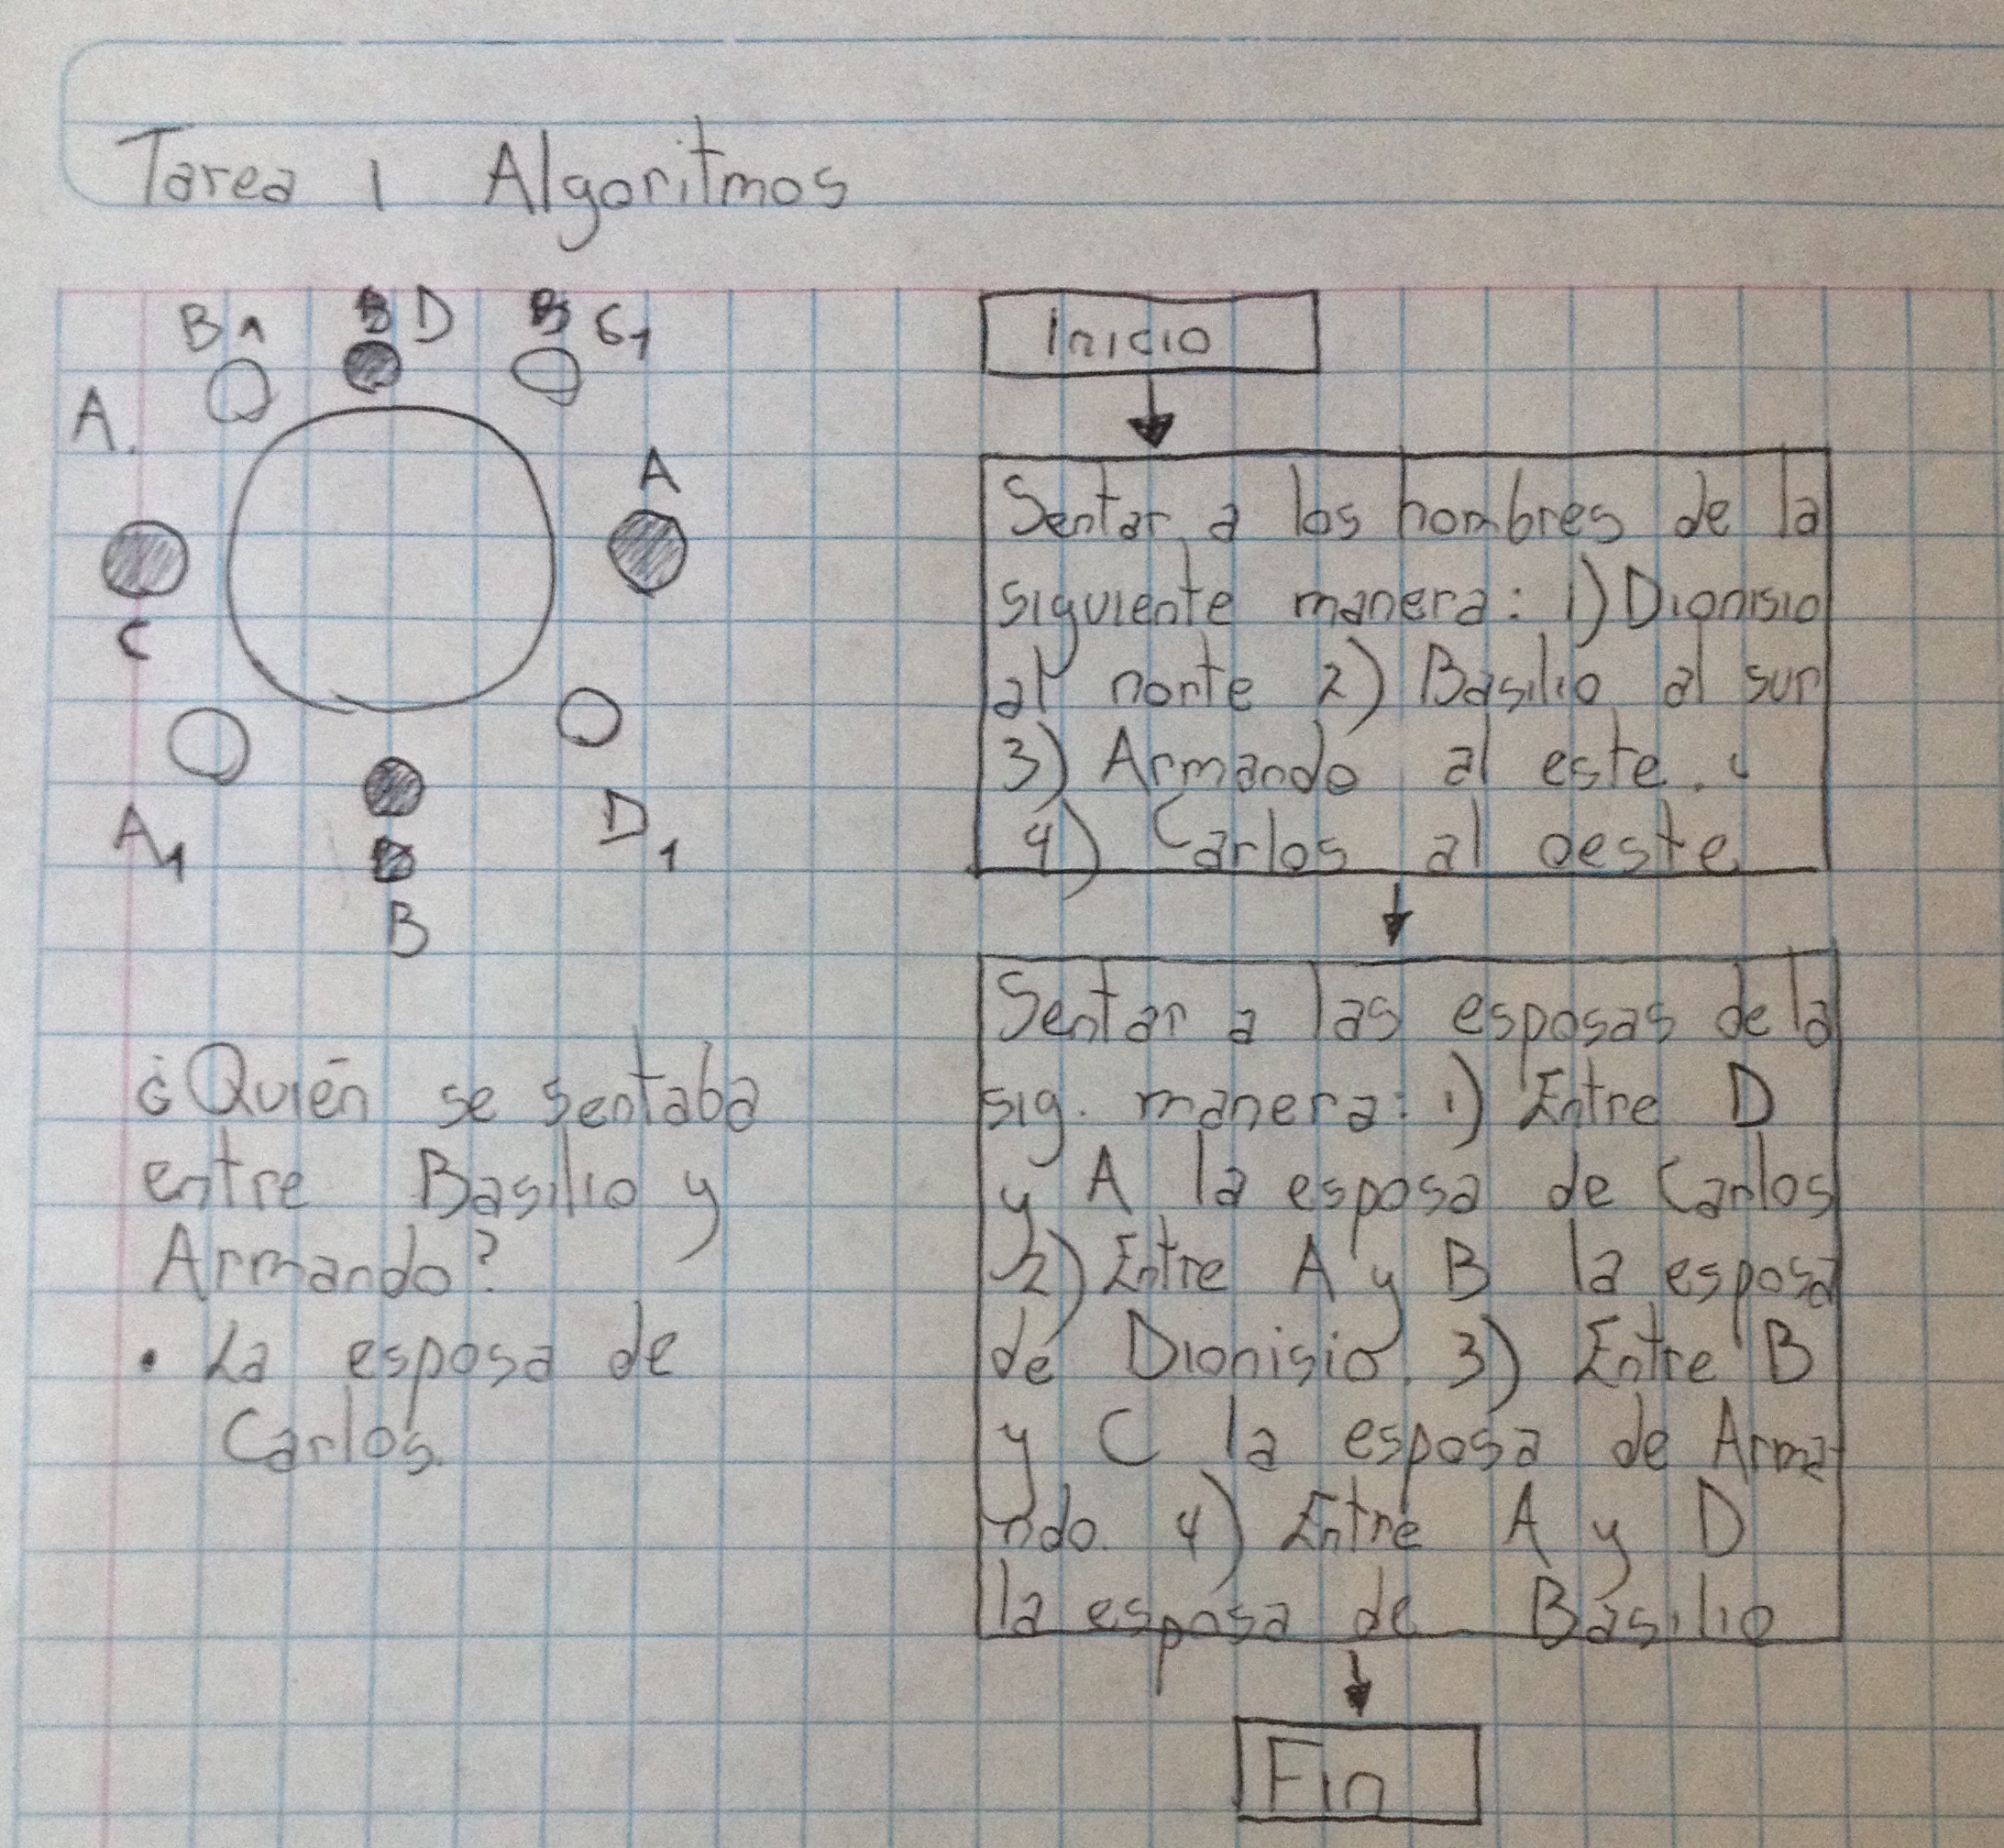 Tarea 1 Algoritmos
B1
D
C1
A.
A
C
A1
D1
B
¿Quién se sentaba
entre Basilio y
Armando?
• La esposa de
Carlos.
Inicio
Sentar a los hombres de la
siguiente manera: 1) Dionisio
al norte 2) Basilio al sur
3) Armando al este.
4) Carlos al oeste
Sentar a las esposas de la
sig. manera: 1) Entre D
y A la esposa de Carlos
2) Entre A y B la esposa
de Dionisio. 3) Entre B
y C la esposa de Arma-
ndo. 4) Entre A y D
la esposa de Basilio
Fin